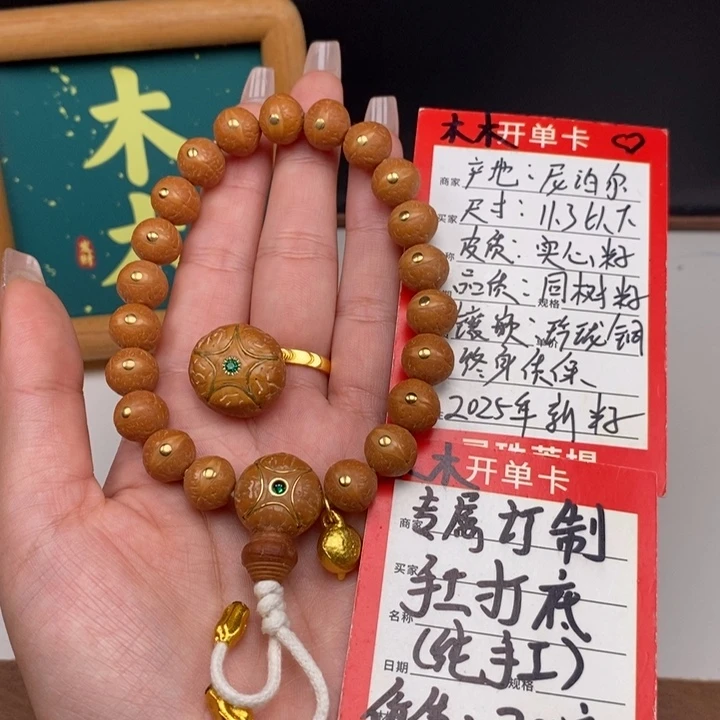 木木
定制
木木开单卡
商家 产地：尼泊尔
买家 尺寸：11.3以下
皮质：实心籽
品质：同树籽
规格
镶嵌：玲珑铜
终身质保
2025年新籽
木木开单卡
商家 专属订制
买家 手工打底
名称
(纯手工)
日期 规格